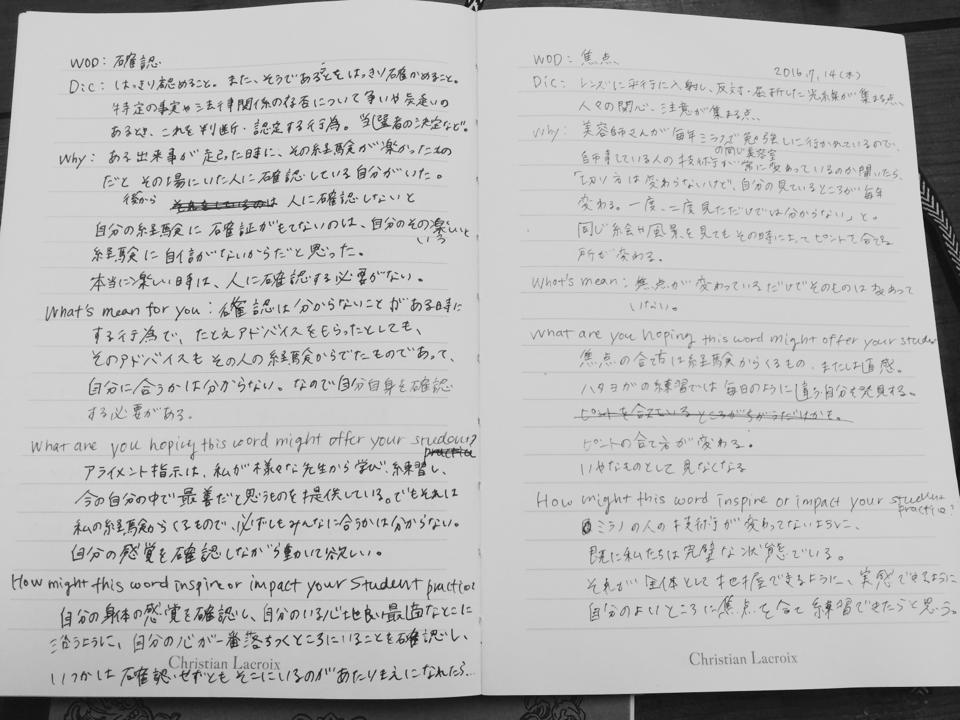 WOD: 確認
Dic: はっきり認めること。また、そうであることをはっきり確かめること。
特定の事実や法律関係の存否について争いや疑いの
あるとき、これを判断・認定する行為。当選者の決定など。
Why: ある出来事が起こった時に、その経験が楽かったもの
だと その場にいた人に確認している自分がいた。
後から 人に確認しないと
自分の経験に確証がもてないのは、自分のその楽しいと
いう
経験に自信がないからだと思った。
本当に楽しい時は、人に確認する必要がない。
What's mean for you: 確認は分からないことがある時に
する行為で、たとえアドバイスをもらったとしても、
そのアドバイスもその人の経験からでたものであって、
自分に合うかは分からない。なので自分自身を確認
する必要がある。
What are you hoping this word might offer your student?
practice
アライメント指示は、私が様々な先生から学び、練習し、
今の自分の中で最善だと思うものを提供している。でもそれは
私の経験からくるもので、必ずしもみんなに合うかは分からない。
自分の感覚を確認しながら動いて欲しい。
How might this word inspire or impact your student practice
自分の身体の感覚を確認し、自分のいる心地良い最適なとこに
沿うように、自分の心が一番落ちつくところにいることを確認し、
いつかは確認せずともそこにいるのがあたりまえになれたら…
Christian Lacroix
WOD: 焦点
2016.7.14(木)
Dic: レンズに平行に入射し、反対・屈折した光線が集まる点、
人々の関心・注意が集まる点、
Why: 美容師さんが毎年ミラノへ勉強しに行かれているので、
の同じ美容室
自市している人の技術が常に変わっているのか聞いたら、
「切り方は変わらないけど、自分の見ているところが毎年
変わる。一度、二度見ただけでは分からない」と。
同じ絵や風景を見てもその時によってピントを合てる
所が変わる。
What's mean: 焦点が変わっているだけでそのものは変わって
いない。
What are you hoping this word might offer your student
焦点の合て方は経験からくるもの、または直感。
ハタヨガの練習では毎日のように違う自分を発見する。
ピントを合てているところがちがうだけかも。
ピントの合て方が変わる。
いやなものとして見なくなる
How might this word inspire or impact your student
practice?
ミラノの人の技術が変わってないように、
既に私たちは完璧な状態でいる。
それが 固体として把握できるように、実感できるように
自分のよいところに焦点を合て練習できたらと思う。
Christian Lacroix